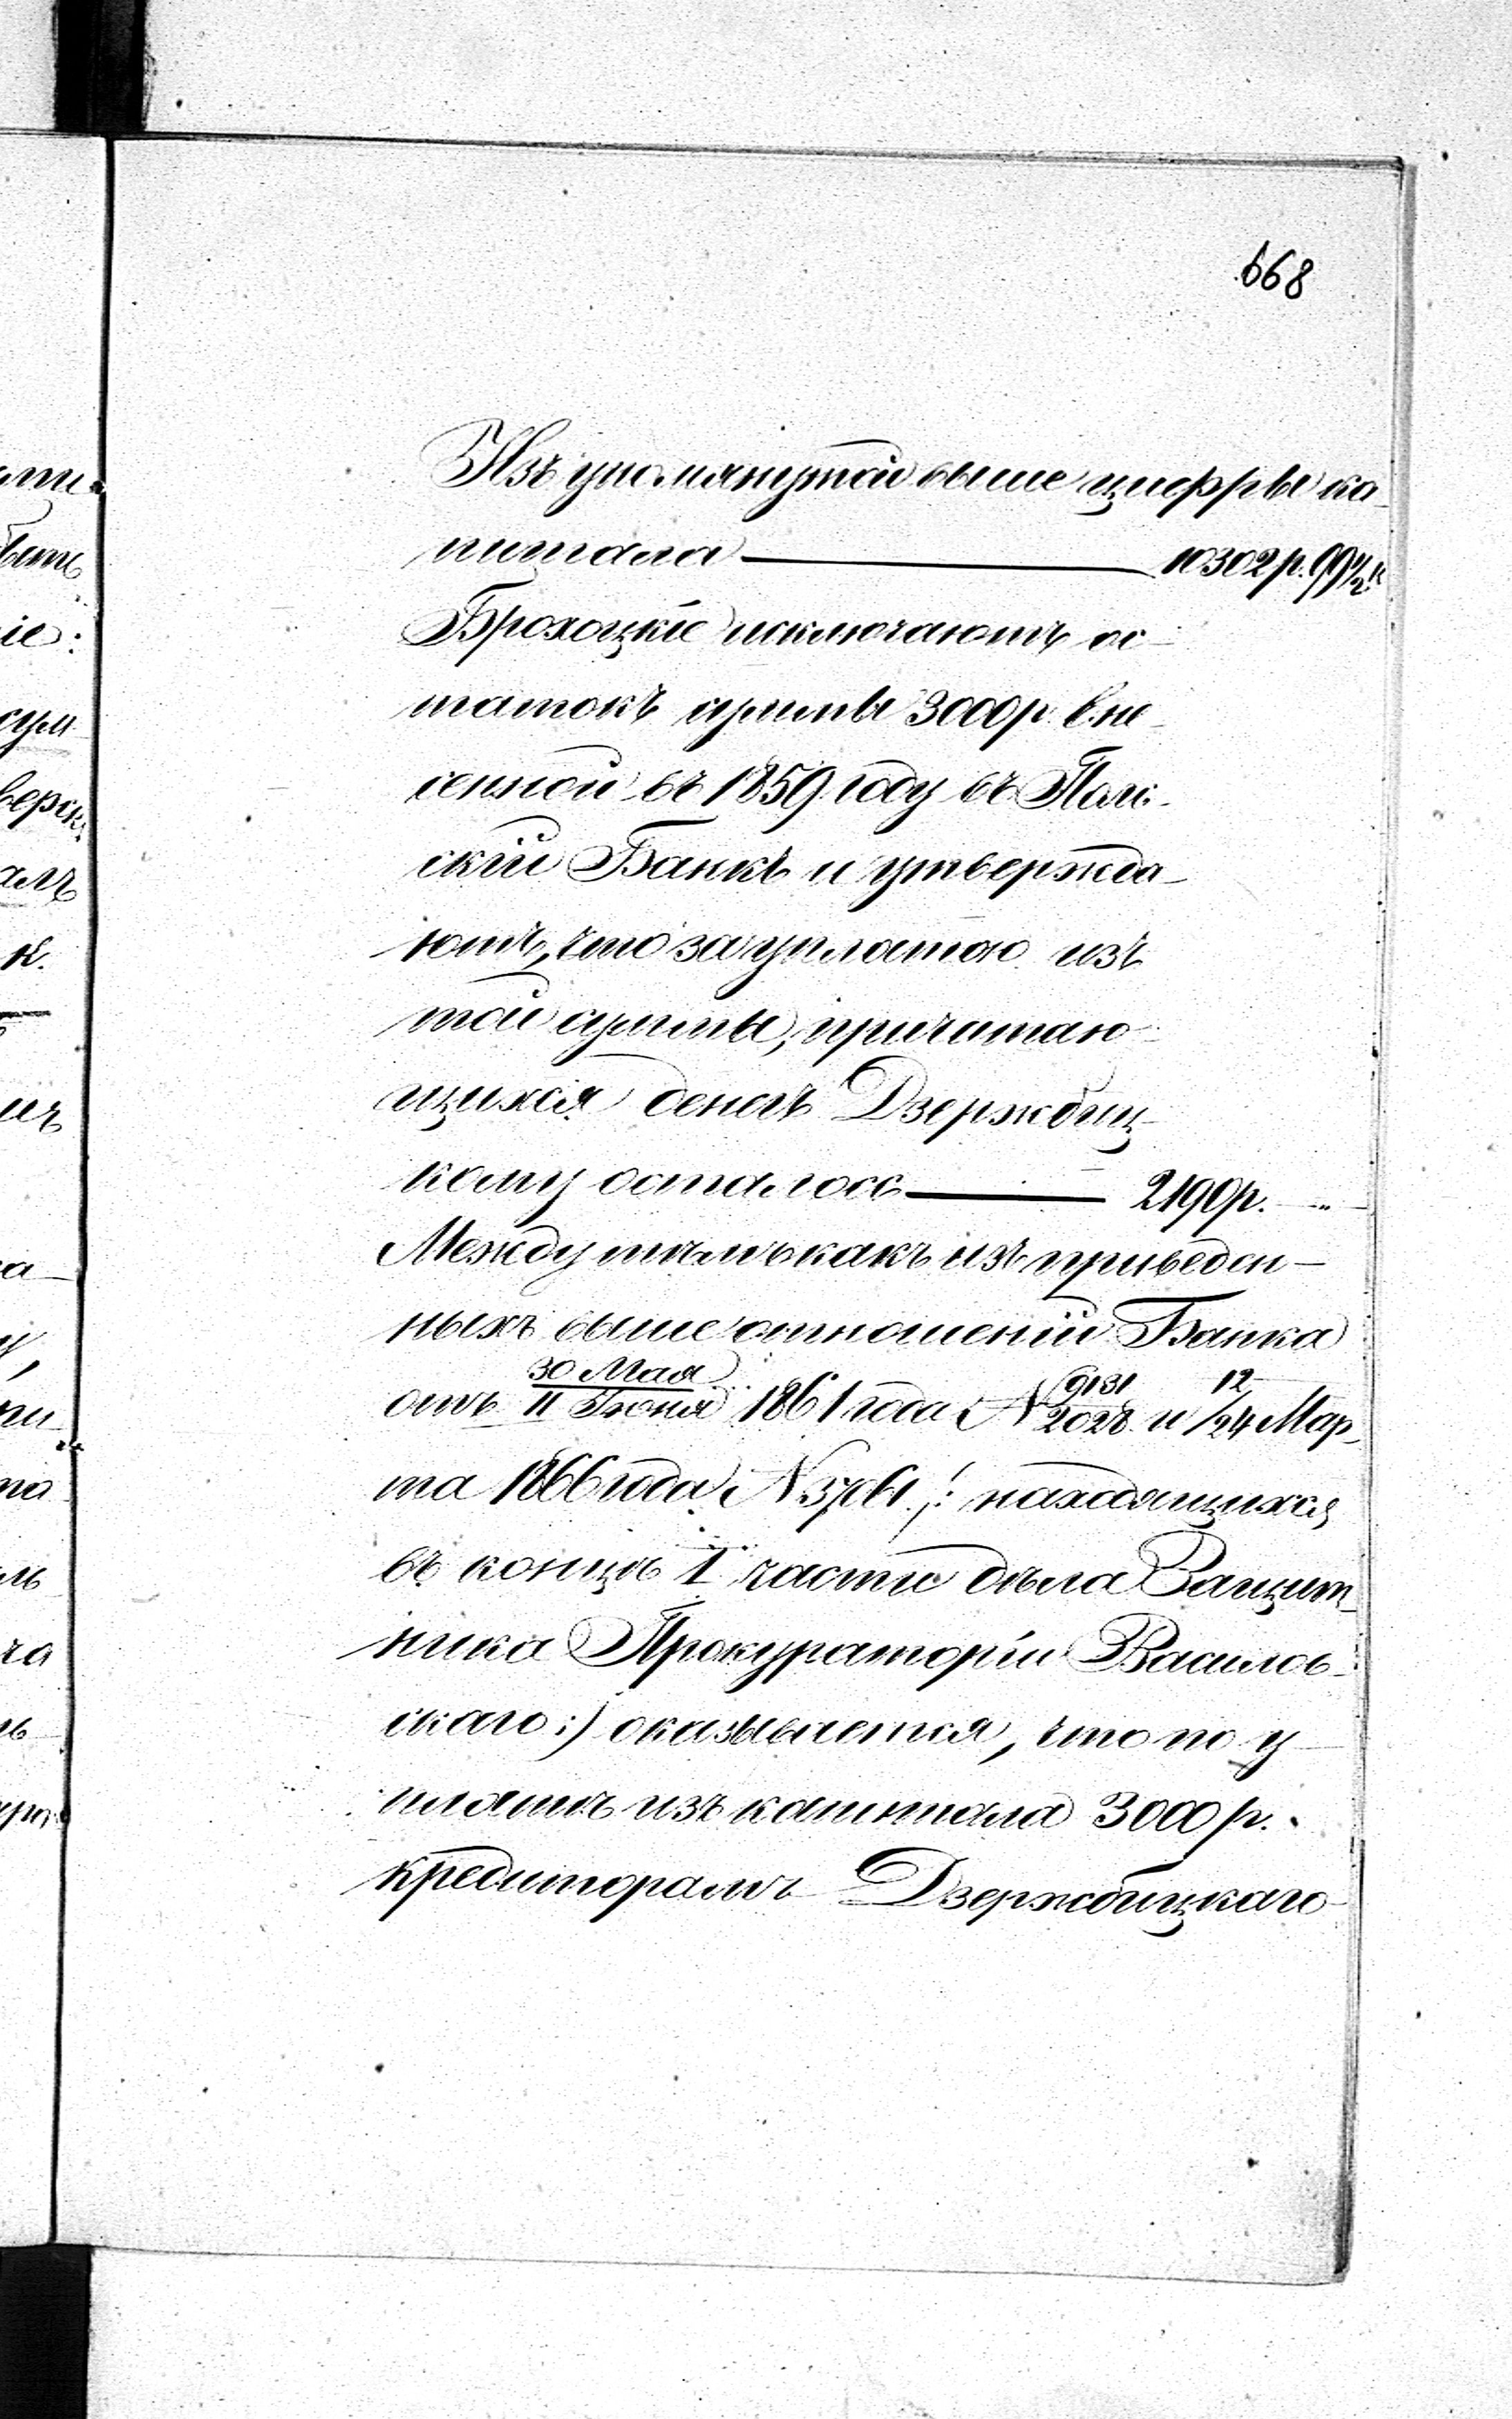 668
Изъ упомянутой выше цифры ка-
питала — 10302 р. 99½ к
Брохоцкіе исключаютъ ос-
татокъ суммы 3000 р. вне-
сенной въ 1859 году въ Поль-
скій Банкъ и утвержда-
ютъ, что за уплатою изъ
той суммы, причитаю-
щихся денегъ Дзержбиц-
кому осталось — 2190 р. „ —
Между тѣмъ какъ изъ приведен-
ныхъ выше отношеній Банка
отъ 30 Мая/11 Іюня 1861 года № 9131/2028 и 12/24 Мар-
та 1866 года № 3761 /: находящихся
въ концѣ I части дѣла Защит-
ника Прокураторіи Василов-
скаго :/ оказывается, что по у-
платѣ изъ капитала 3000 р.
кредиторамъ Дзержбицкаго